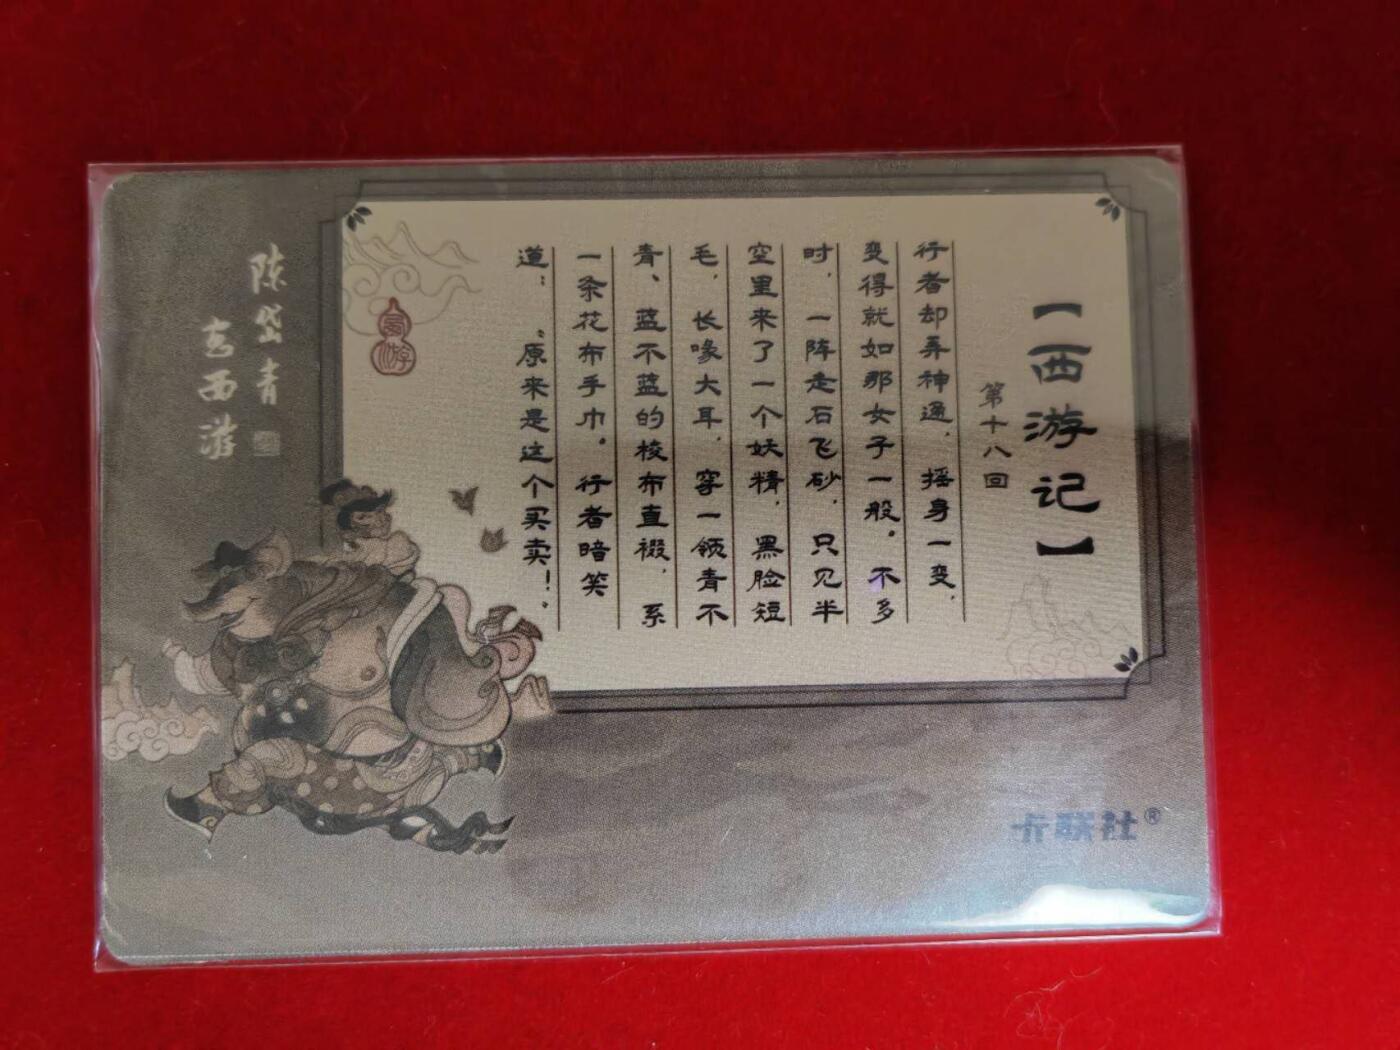 【西游记】
第十八回
行者却弄神通，摇身一变，
变得就如那女子一般。不多
时，一阵走石飞砂，只见半
空里来了一个妖精，黑脸短
毛，长喙大耳，穿一领青不
青、蓝不蓝的梭布直裰，系
一条花布手巾。行者暗笑
道：“原来是这个买卖！”
陈岱青
西游
卡联社®